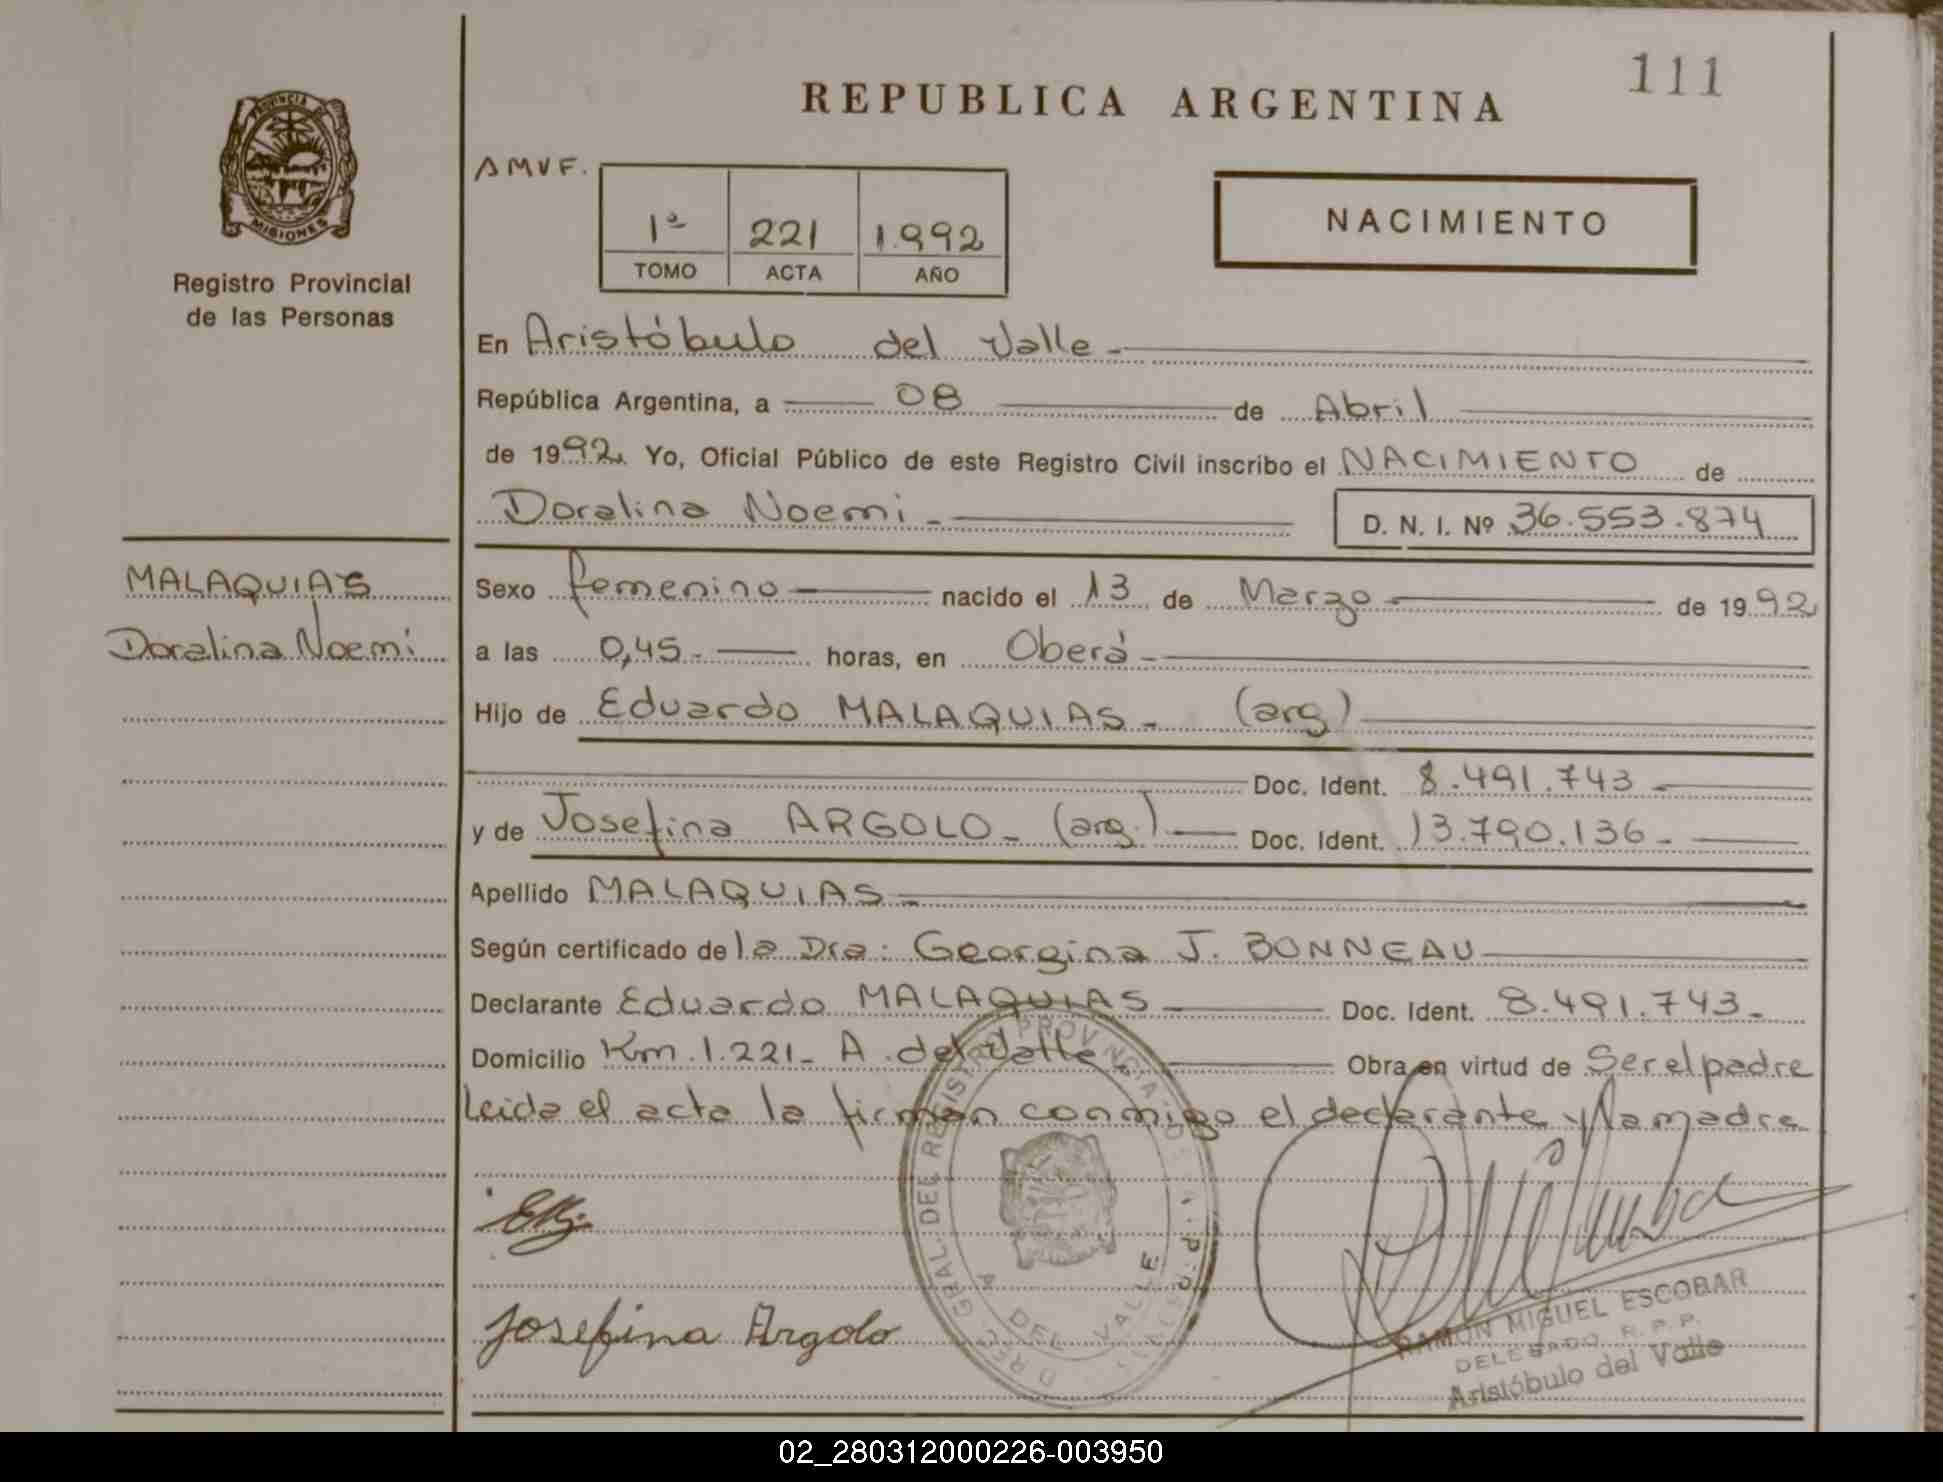 111
REPUBLICA ARGENTINA
PROVINCIA DE
MISIONES
Registro Provincial
de las Personas
AMVF.
1ª 221 1.992
TOMO ACTA AÑO
NACIMIENTO
En Aristóbulo del Valle.-
República Argentina, a 08 de Abril
de 1992. Yo, Oficial Público de este Registro Civil inscribo el NACIMIENTO de
Doralina Noemi.- D. N. I. Nº 36.553.874
MALAQUIAS
Doralina Noemi
Sexo femenino nacido el 13 de Marzo de 1992
a las 0,45.- horas, en Oberá.-
Hijo de Eduardo MALAQUIAS.- (arg)
Doc. Ident. 8.491.743.-
y de Josefina ARGOLO.- (arg.) Doc. Ident. 13.790.136.-
Apellido MALAQUIAS.-
Según certificado de la Dra: Georgina J. BONNEAU
Declarante Eduardo MALAQUIAS Doc. Ident. 8.491.743.-
Domicilio Km. 1.221- A. del Valle Obra en virtud de Ser el padre
Leida el acta la firman conmigo el declarante y la madre
Josefina Argolo
A DEL VALLE
RAMON MIGUEL ESCOBAR
DELEGADO. R. P. P.
Aristóbulo del Valle
02_280312000226-003950